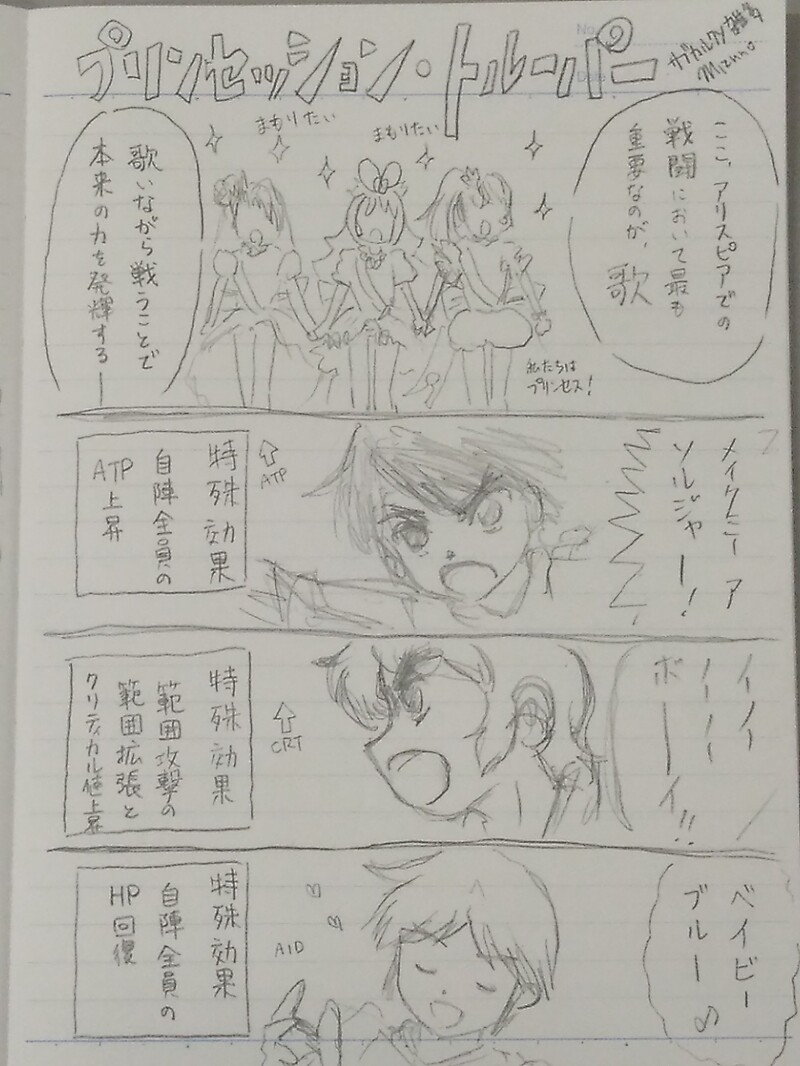 プリンセッション・トルーパー
サブカルクソ雑多
Mizuno
ここ、アリスピアでの
戦闘において最も
重要なのが、歌
まもりたい
まもりたい
歌いながら戦うことで
本来の力を発揮する—
私たちは
プリンセス！
メイクミー ア
ソルジャー！
ATP
特殊効果
自陣全員の
ATP
上昇
イイイ
ノーノー
ボーーイ!!
CRT
特殊効果
範囲攻撃の
範囲拡張と
クリティカル値上昇
ベイビー
ブルー♪
AID
特殊効果
自陣全員の
HP
回復